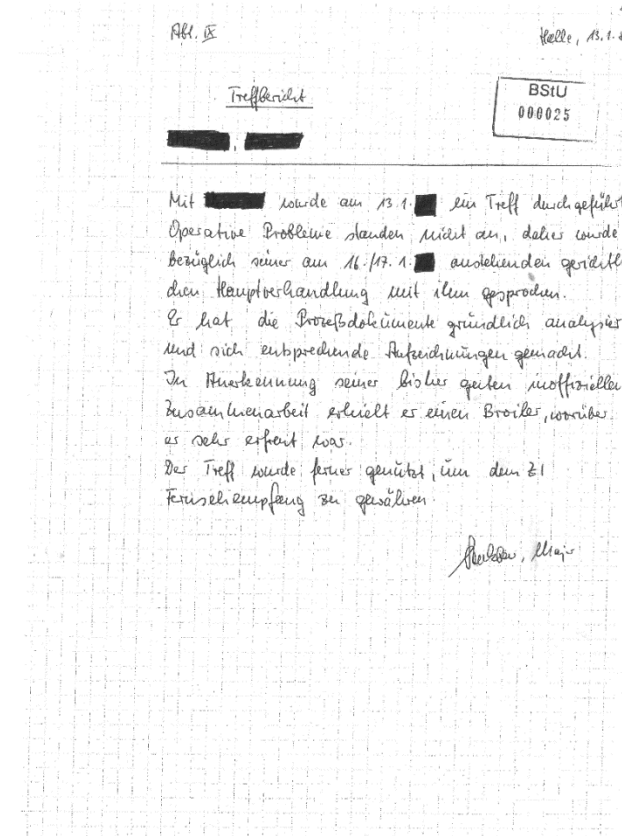 Abt. IX
Halle, 13.1.
Treffbericht
BStU
000025
Mit wurde am 13.1. ein Treff durchgeführt
Operative Probleme standen nicht an, daher wurde
bezüglich seiner am 16./17.1. anstehenden gerichtl
chen Hauptverhandlung mit ihm gesprochen.
Er hat die Prozeßdokumente gründlich analysier
und sich entsprechende Aufzeichnungen gemacht.
In Anerkennung seiner bisher guten inoffiziellen
Zusammenarbeit erhielt er einen Broiler, worüber
er sehr erfreut war.
Der Treff wurde ferner genützt, um dem ZI
Fernsehempfang zu gewähren.
Major